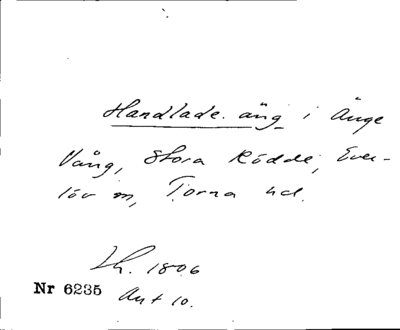 Handlade äng i Änge
Vång, Stora Rödde, Ever-
löv sn, Torna hd.
Lh. 1806
Nr 6235 Akt 10.